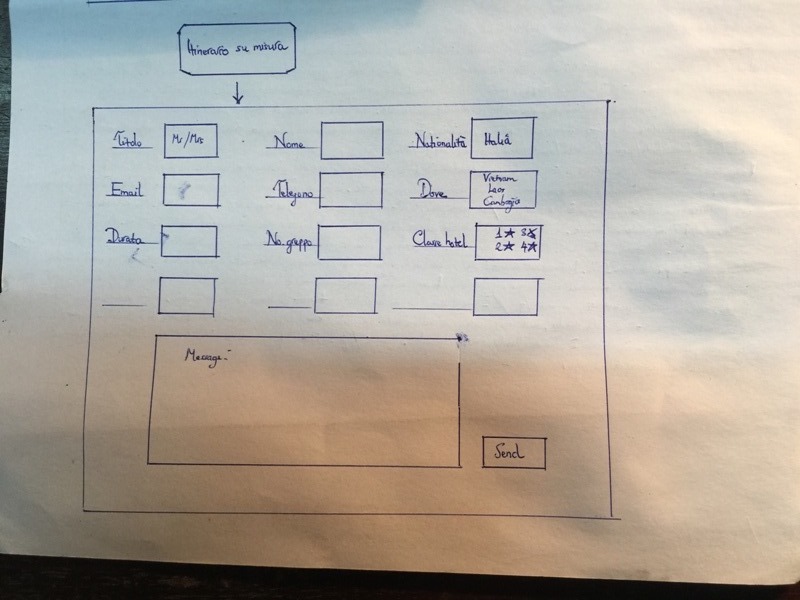 Itinerario su misura
Titolo Mr/Mrs Nome Nazionalità Italia
Email Telefono Dove Vietnam
Laos
Cambogia
Durata No. gruppo Classe hotel 1★ 3★
2★ 4★
Message:
Send